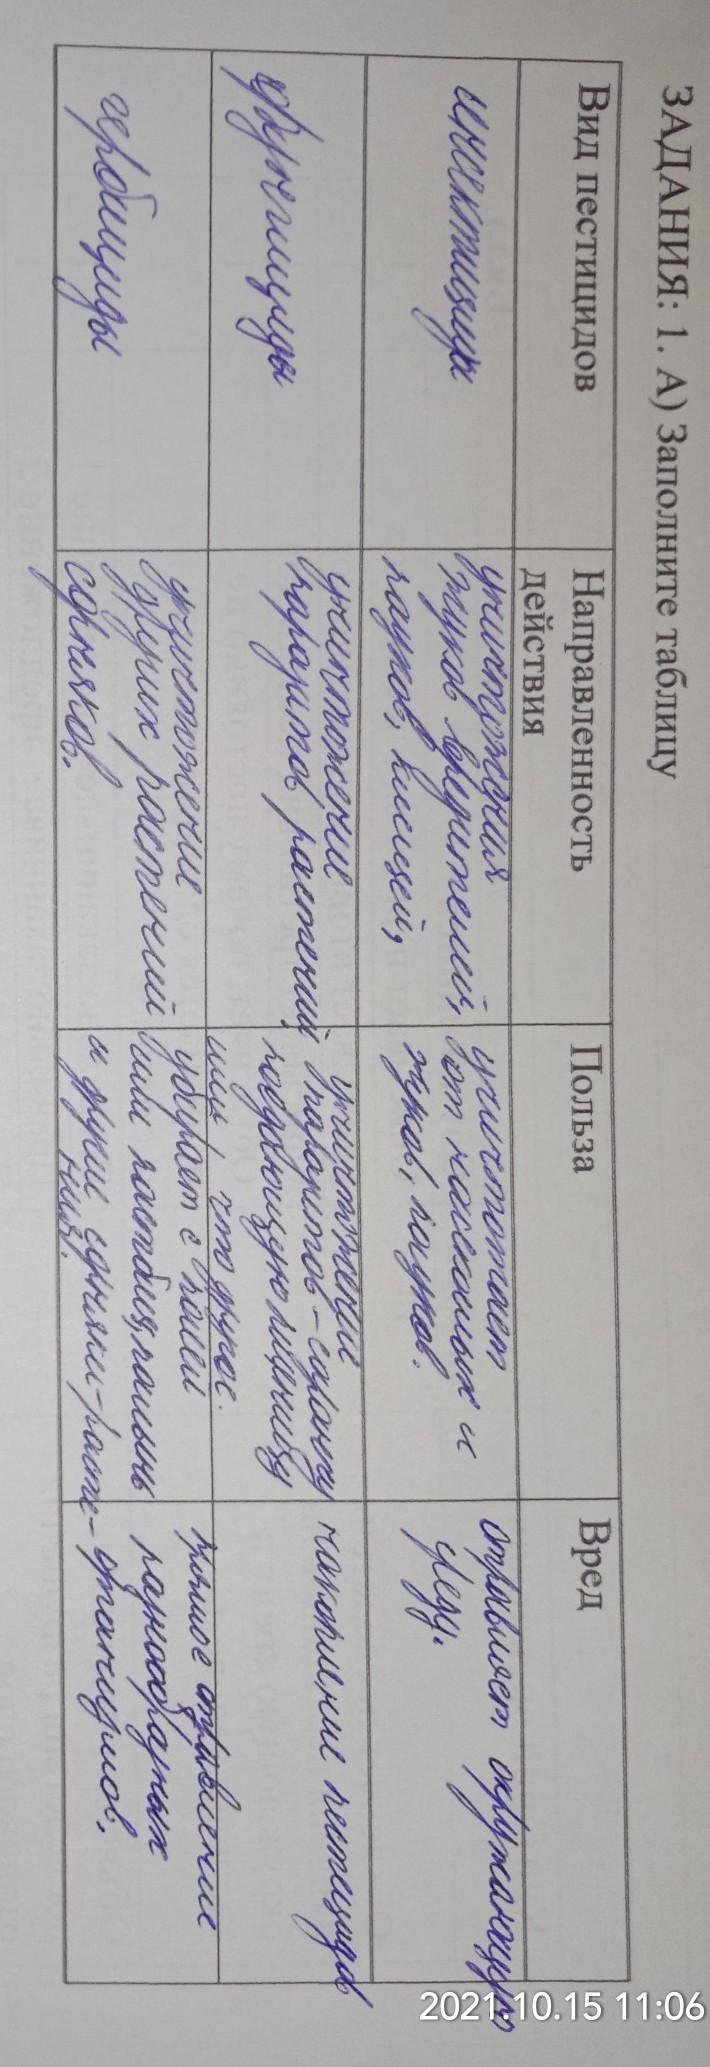 ЗАДАНИЯ: 1. А) Заполните таблицу
Вид пестицидов
Направленность
действия
Польза
Вред
инсектициды
уничтожения
жуков вредителей,
пауков, клещей,
уничтожает
от насекомых и
жуков, пауков.
отравляет окружающую
среду.
фунгициды
уничтожение
паразитов растений
уничтожение
паразитов-
поедающую пшеницу
или, что другое.
накопление пестицидов
гербициды
уничтожение
других растений
сорняков.
убирает с полей
полынь
и другие сорняки-расте-
ния.
прямое отравление
разнообразных
организмов.
2021.10.15 11:06